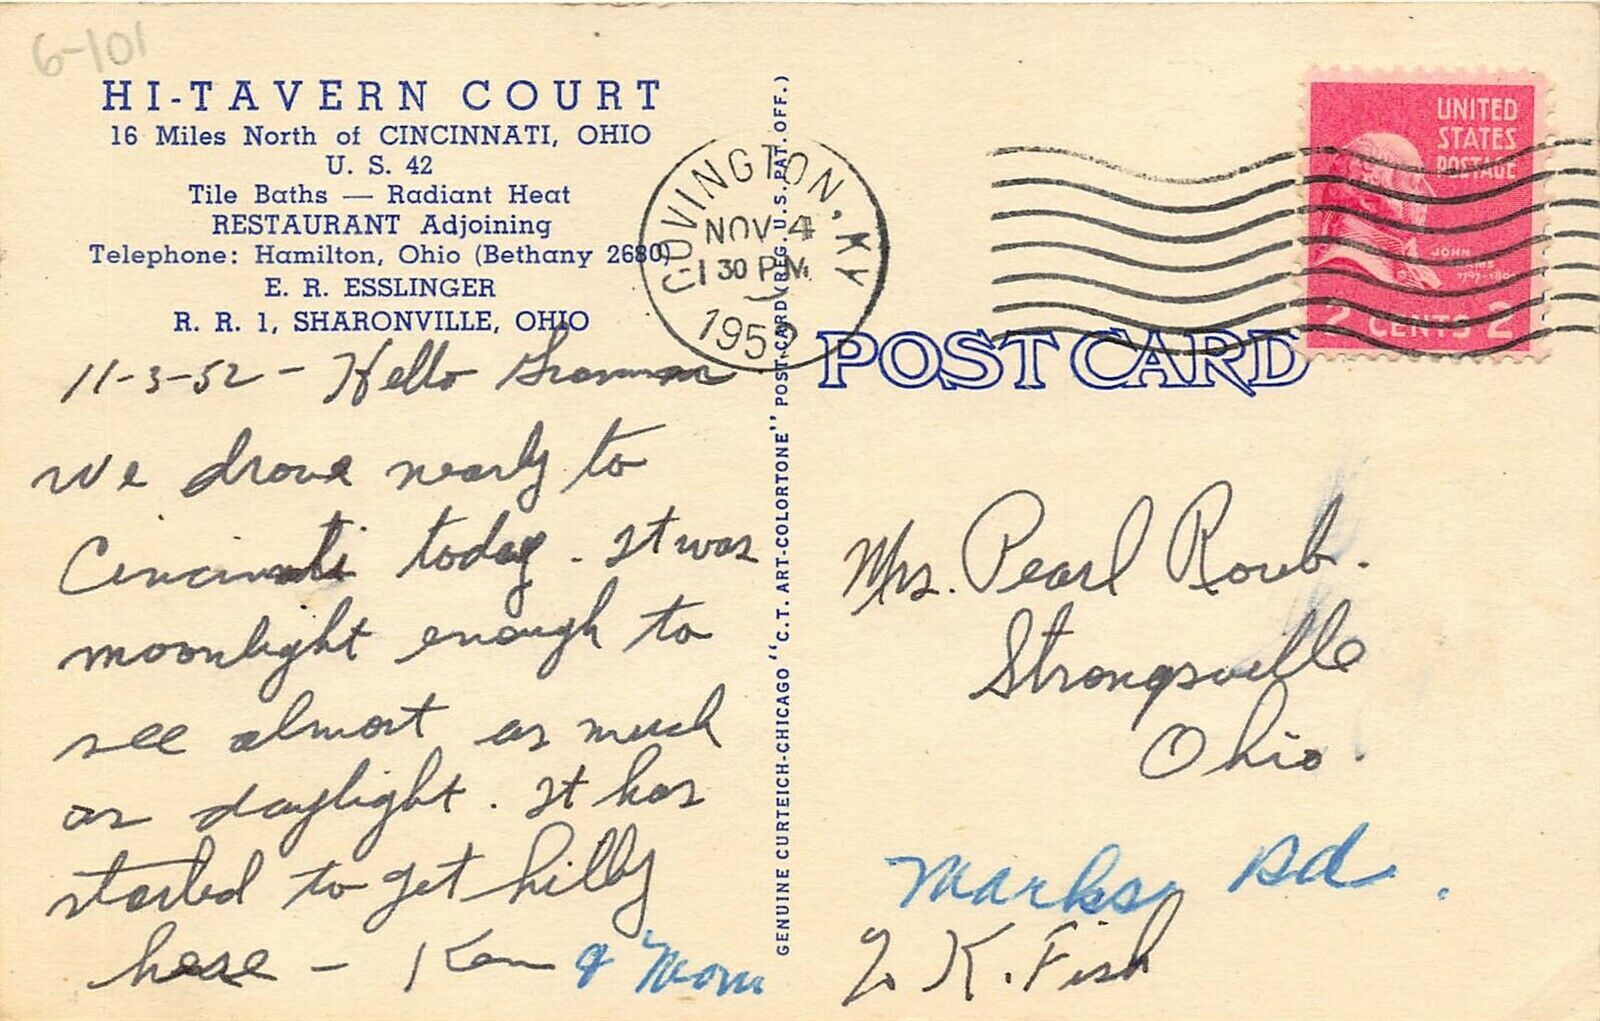 6-101
HI-TAVERN COURT
16 Miles North of CINCINNATI, OHIO
U. S. 42
Tile Baths — Radiant Heat
RESTAURANT Adjoining
Telephone: Hamilton, Ohio (Bethany 2680)
E. R. ESSLINGER
R. R. 1, SHARONVILLE, OHIO
11-3-52 - Hello Gramma
We drove nearly to
Cincinnati today. It was
moonlight enough to
see almost as much
as daylight. It has
started to get hilly
here - Ken & Mom
GENUINE CURTEICH-CHICAGO "C. T. ART-COLORTONE" POST CARD (REG. U. S. PAT. OFF.)
COVINGTON, KY
NOV 4
1 30 PM
1952
UNITED
STATES
POSTAGE
JOHN
ADAMS
1797-180
2 CENTS 2
POST CARD
Mrs. Pearl Roub.
Strongsville
Ohio.
Marks Rd.
K. Fish